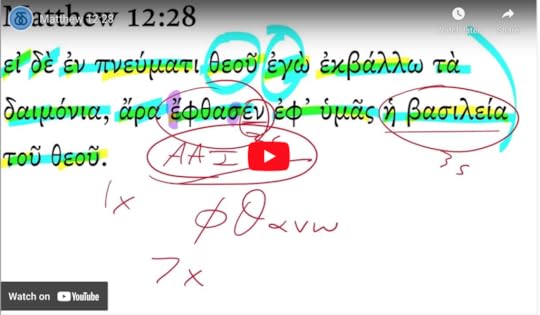 Matthew 12:28
Matthew 12:28
Watch later
Share
εἰ δὲ ἐν πνεύματι θεοῦ ἐγὼ ἐκβάλλω τὰ
δαιμόνια, ἄρα ἔφθασεν ἐφ’ ὑμᾶς ἡ βασιλεία
τοῦ θεοῦ.
AAI
3s
1x
φθανω
7x
Watch on YouTube